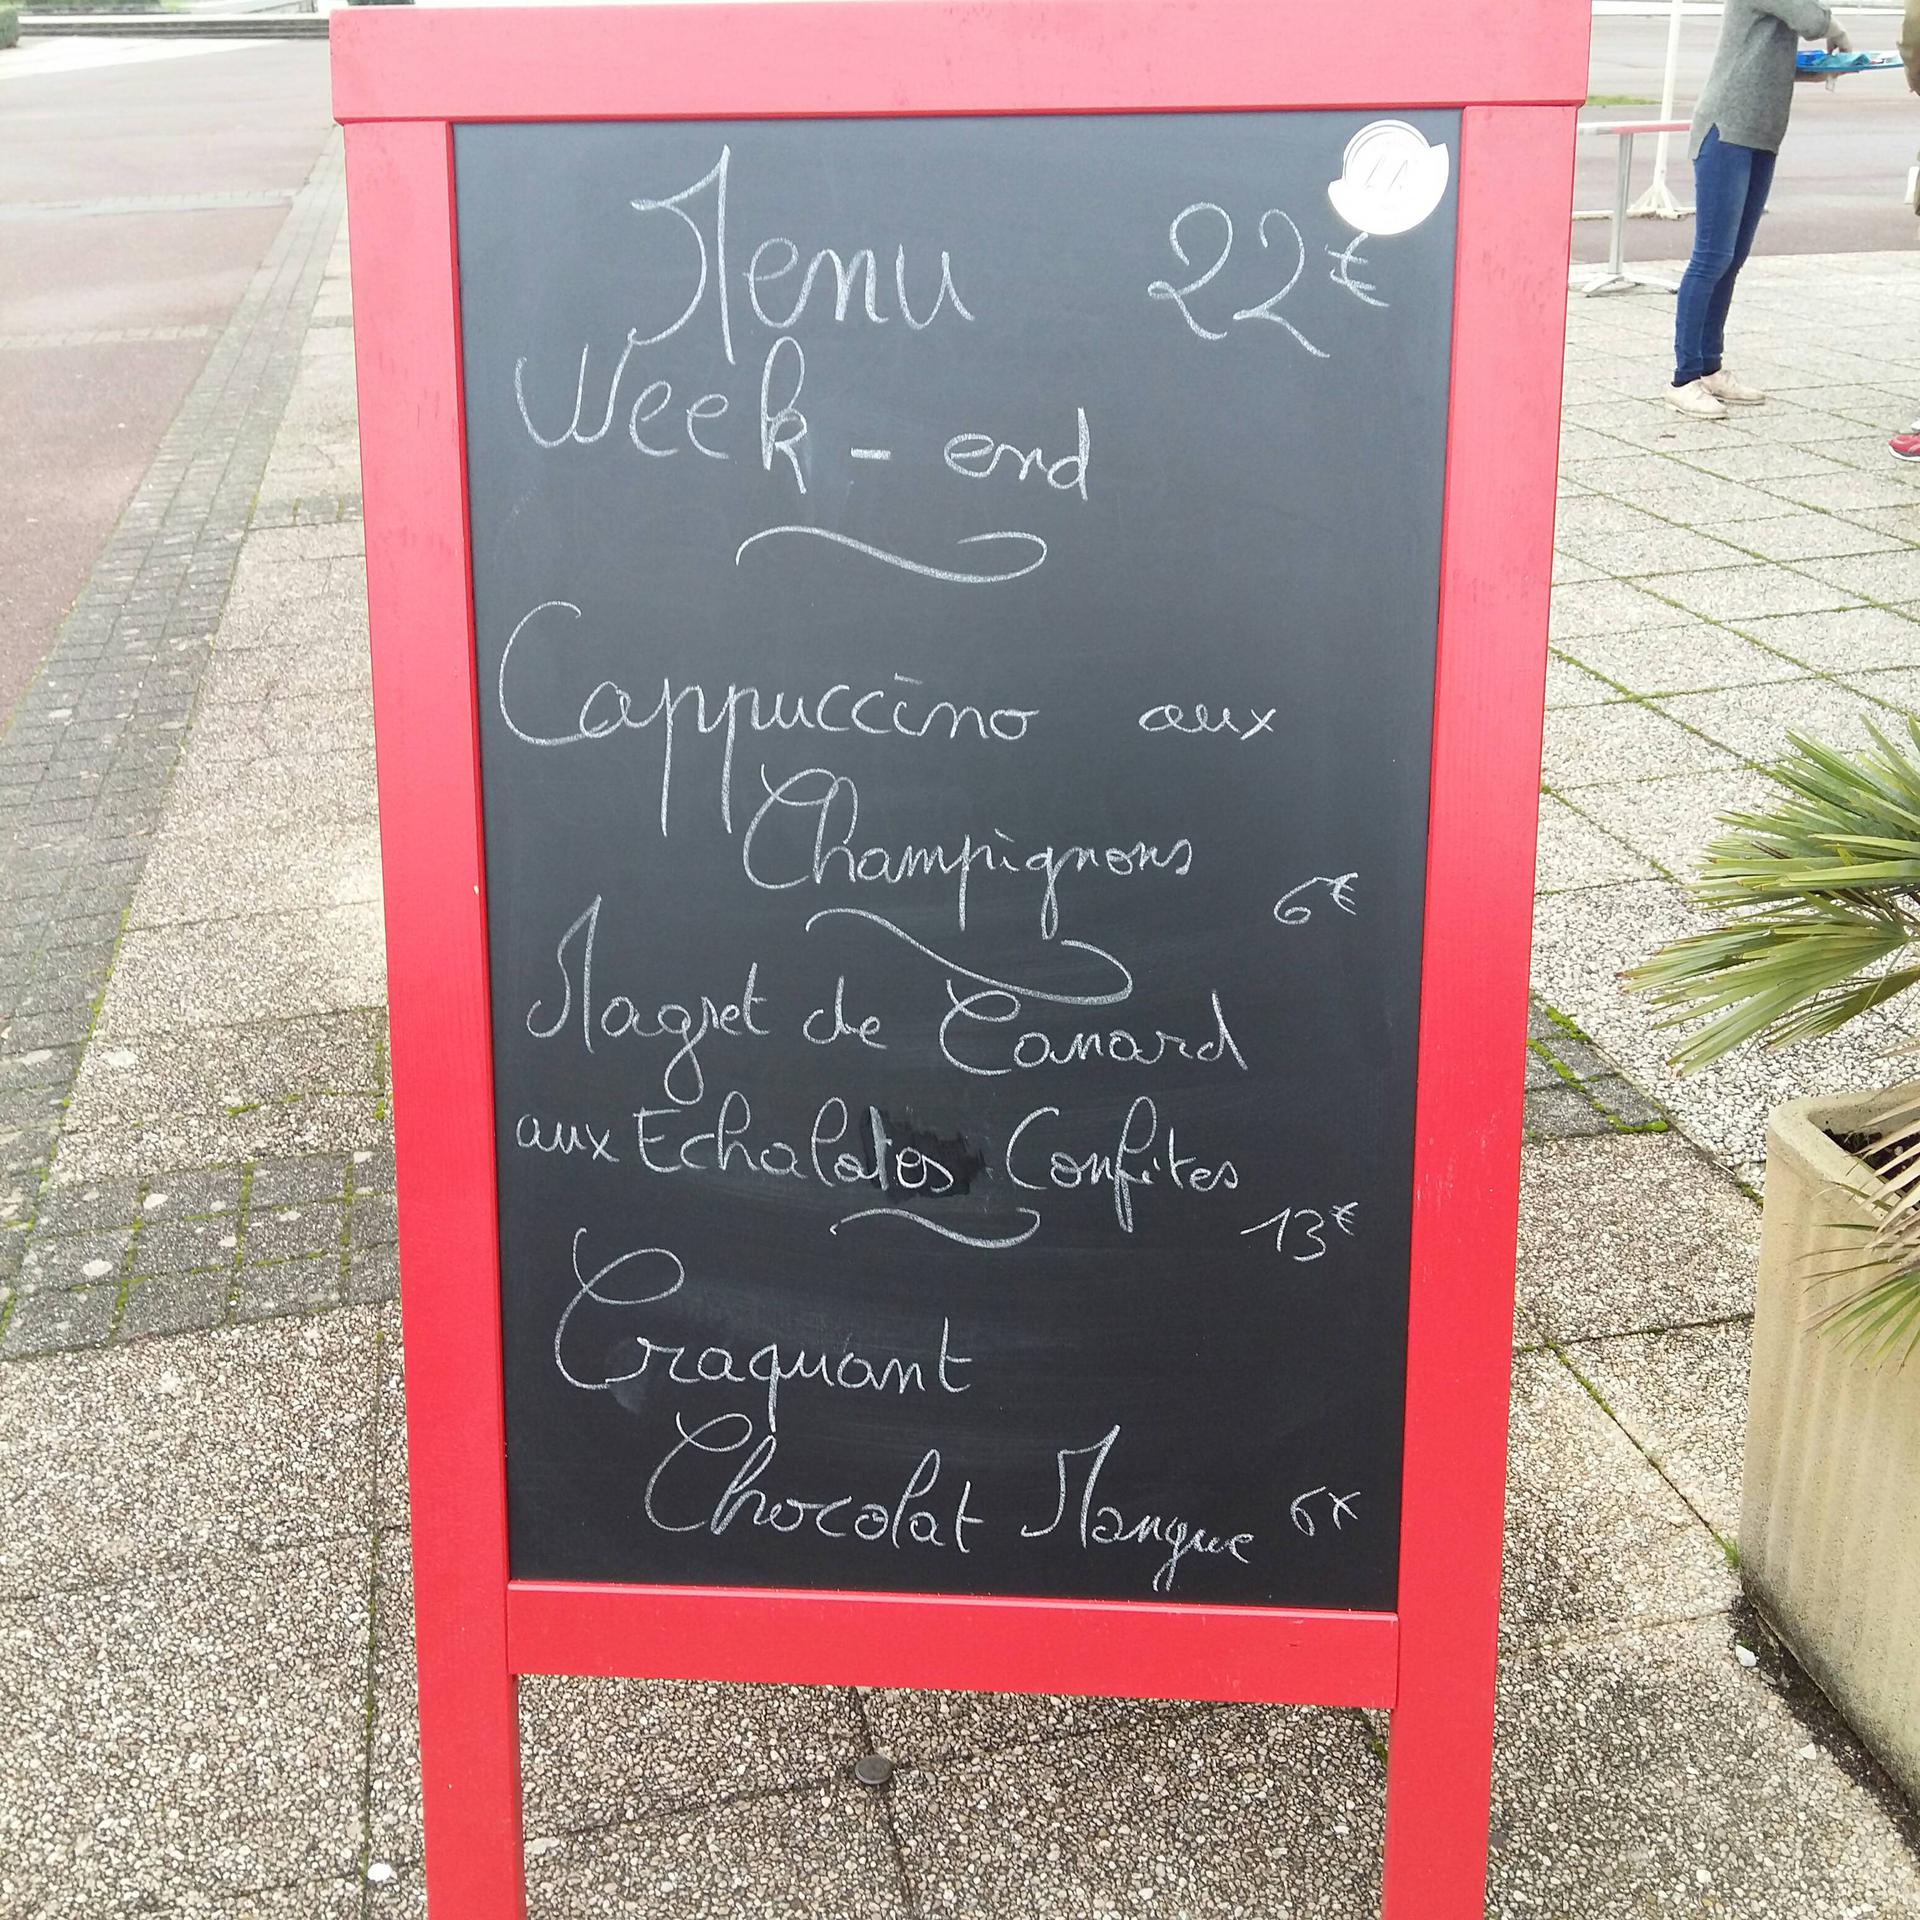 Menu 22€
Week-end
Cappuccino aux
Champignons
6€
Magret de Canard
aux Echalotes Confites
13€
Craquant
Chocolat Mangue 6€